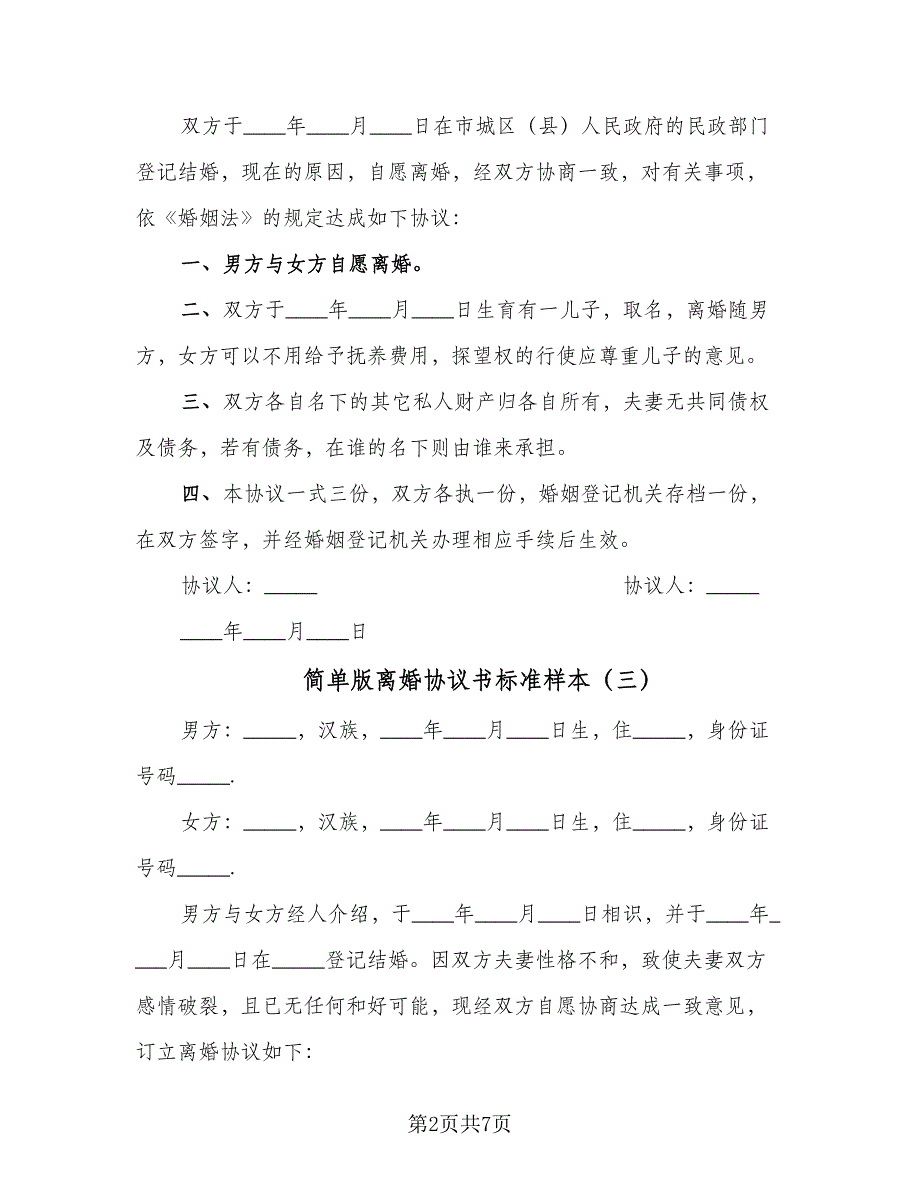 双方于____年____月____日在市城区（县）人民政府的民政部门
登记结婚，现在的原因，自愿离婚，经双方协商一致，对有关事项，
依《婚姻法》的规定达成如下协议：
一、男方与女方自愿离婚。
二、双方于____年____月____日生育有一儿子，取名，离婚随男
方，女方可以不用给予抚养费用，探望权的行使应尊重儿子的意见。
三、双方各自名下的其它私人财产归各自所有，夫妻无共同债权
及债务，若有债务，在谁的名下则由谁来承担。
四、本协议一式三份，双方各执一份，婚姻登记机关存档一份，
在双方签字，并经婚姻登记机关办理相应手续后生效。
协议人：_____ 协议人：_____
____年____月____日
简单版离婚协议书标准样本（三）
男方：_____，汉族，____年____月____日生，住_____，身份证
号码_____.
女方：_____，汉族，____年____月____日生，住_____，身份证
号码_____.
男方与女方经人介绍，于____年____月____日相识，并于____年_
___月____日在_____登记结婚。因双方夫妻性格不和，致使夫妻双方
感情破裂，且已无任何和好可能，现经双方自愿协商达成一致意见，
订立离婚协议如下：
第2页共7页